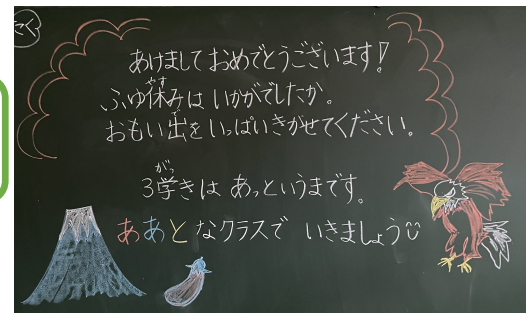 あけましておめでとうございます!
ふゆ休みは いかがでしたか。
おもい出を いっぱいきかせてください。
3学きは あっというまです。
ああとなクラスで いきましょう